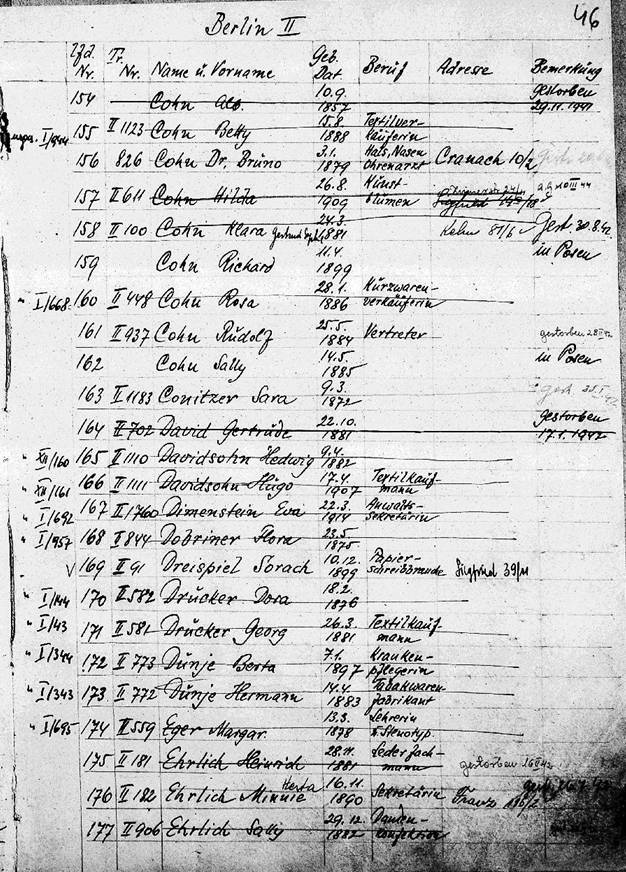 46
Berlin II
Lfd. Nr. Tr. Nr. Name u. Vorname Geb. Dat Beruf Adresse Bemerkung
154 Cohn 10.9. 1857 gestorben 29.11.1941
I/1444 155 II 1123 Cohn Betty 15.8. 1888 Textilver-
käuferin
156 826 Cohn Dr. Bruno 3.1. 1879 Hals, Nasen
Ohrenarzt Cranach 10/2
157 II 611 Cohn Hilda 26.8. 1909 Kunst-
blumen
158 II 100 Cohn Klara 24.3. 1881 Kelm 81/6 gest. 30.8.42
159 Cohn Richard 11.4. 1899 in Posen
" I/668 160 II 448 Cohn Rosa 28.1. 1886 Kurzwaren-
verkäuferin
161 II 937 Cohn Rudolf 25.5. 1884 Vertreter gestorben
162 Cohn Sally 14.5. 1885 in Posen
163 II 1183 Conitzer Sara 9.3. 1872 gest.
164 II 702 David Gertrude 22.10. 1881 gestorben 17.1.1942
" XII/160 165 II 1110 Davidsohn Hedwig 9.4. 1882
" XII/161 166 II 1111 Davidsohn Hugo 17.4. 1907 Textilkauf-
mann
" I/692 167 II 1760 Dimenstein Eva 22.3. 1914 Anwalts-
sekretärin
" I/957 168 II 844 Dobriner Flora 23.5 1875
V 169 II 91 Dreispiel Sorach 10.12. 1899 Papier-
Siegfried 39/11
" I/144 170 II 582 Drucker Dora 18.2. 1876
" I/43 171 II 581 Drucker Georg 26.3. 1881 Textilkauf
mann
" I/344 172 II 773 Dünje Berta 7.1. 1897 Kranken-
pflegerin
" I/343 173 II 772 Dünje Hermann 14.4. 1883 Tabakwaren
fabrikant
" I/695 174 II 559 Eger Margar. 13.3. 1878 Lehrerin
u. Stenotyp.
175 II 181 Ehrlich Heinrich 28.11. 1881 Lederfach-
mann gestorben
176 II 182 Ehrlich Minnie Herta 16.11. 1890 Sekretärin Franz 186/2
177 II 906 Ehrlich Sally 29.12. 1882 Damen-
konfektion